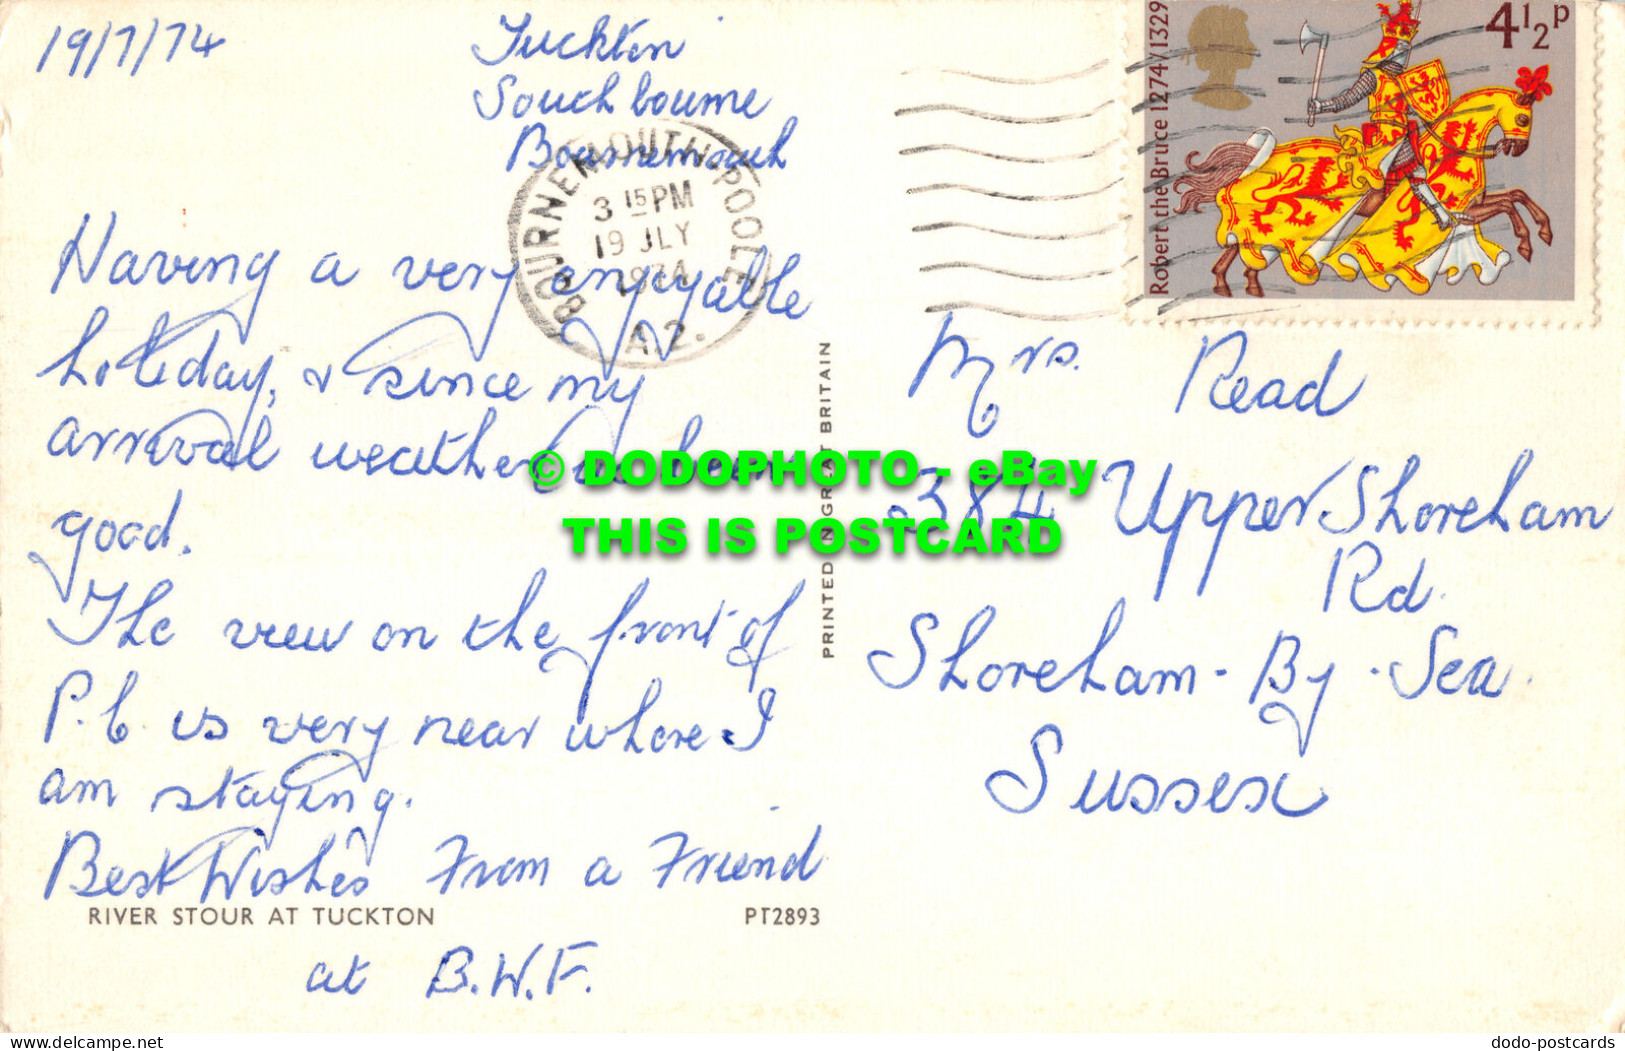 19/7/74
Tuckton
Southbourne
Bournemouth
BOURNEMOUTH-POOLE
3 15 PM
19 JLY
1974
A2.
Robert the Bruce 1274/1329
4½p
Having a very enjoyable
holiday, & since my
arrival weather has been
good.
The view on the front of
P.C. is very near where I
am staying.
Best Wishes From a Friend
at B.W.F.
RIVER STOUR AT TUCKTON
PT2893
PRINTED IN GREAT BRITAIN
Mrs. Read
384 Upper Shoreham
Rd.
Shoreham-By-Sea.
Sussex
© DODOPHOTO - eBay
THIS IS POSTCARD
delcampe.net
dodo-postcards